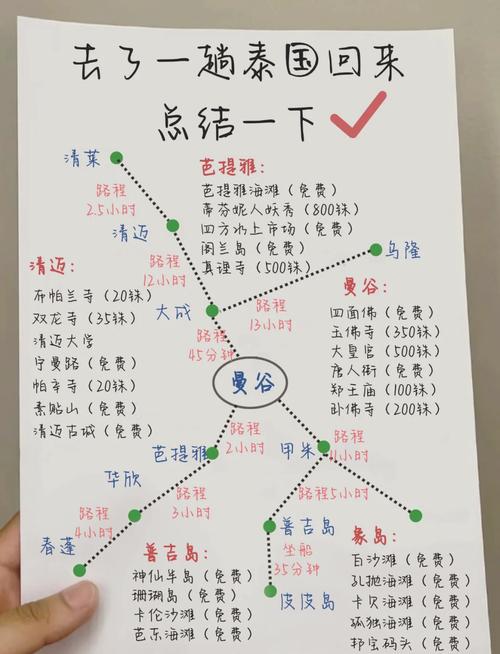 去了一趟泰国回来
总结一下
清莱
路程
2.5小时
清迈
路程
12小时
大成
路程
45分钟
芭提雅:
芭提雅海滩(免费)
蒂芬妮人妖秀(800铢)
四方水上市场(免费)
阁兰岛(免费)
真理寺(500铢)
乌隆
路程
13小时
清迈:
布帕兰寺(20铢)
双龙寺(35铢)
清迈大学
宁曼路(免费)
帕辛寺(20铢)
素贴山(免费)
清迈古城(免费)
曼谷:
四面佛(免费)
玉佛寺(350铢)
大皇宫(500铢)
唐人街(免费)
郑王庙(100铢)
卧佛寺(200铢)
曼谷
芭提雅
路程
2小时
甲米
路程
11小时
华欣
路程
3小时
路程5小时
春蓬
路程
4小时
普吉岛
坐船
35分钟
皮皮岛
普吉岛:
神仙半岛(免费)
珊瑚岛(免费)
卡伦沙滩(免费)
芭东海滩(免费)
象岛:
白沙滩(免费)
孔抛海滩(免费)
卡贝海滩(免费)
孤独海滩(免费)
邦宝码头(免费)